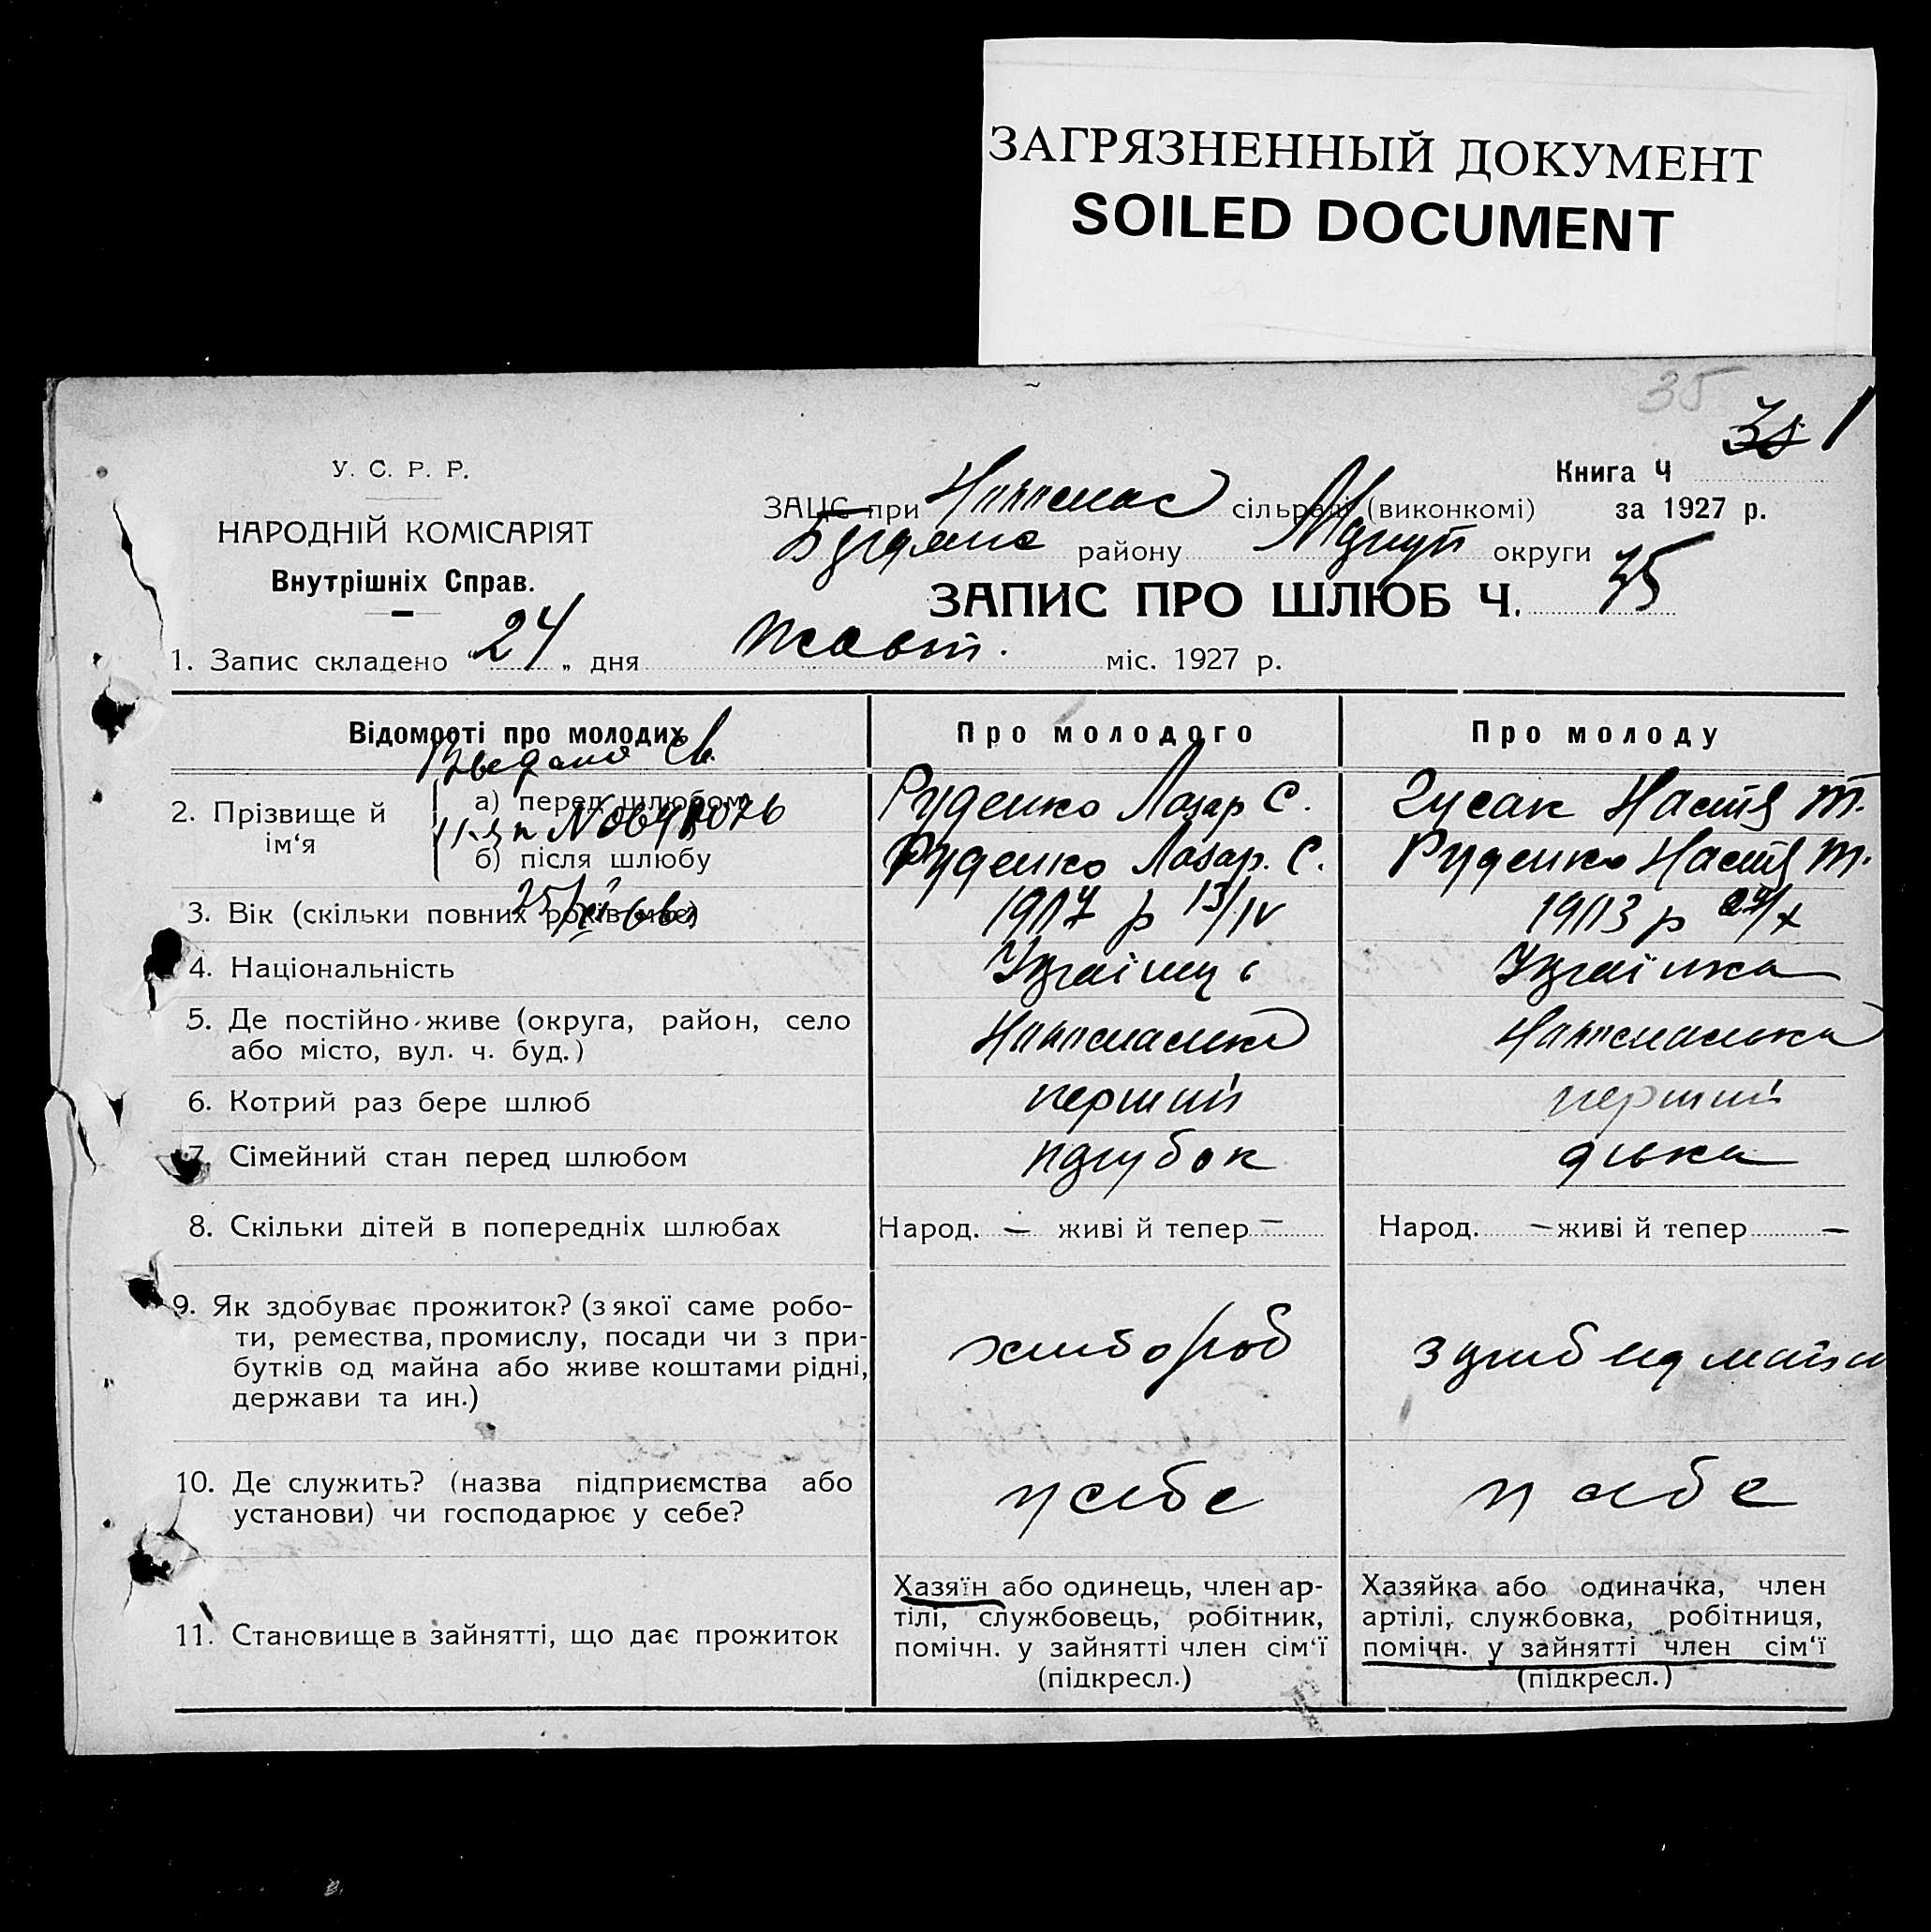 ЗАГРЯЗНЕННЫЙ ДОКУМЕНТ
SOILED DOCUMENT
35
1
У. С. Р. Р.
Книга Ч
ЗАЦС при сільраді (виконкомі) за 1927 р.
НАРОДНІЙ КОМІСАРІЯТ
району округи
Внутрішніх Справ.
ЗАПИС ПРО ШЛЮБ Ч. 35
1. Запис складено „ 24 „ дня жовт. міс. 1927 р.
Відомості про молодих Про молодого Про молоду
2. Прізвище й ім‘я
а) перед шлюбом Руденко Лазар С. Гусак Настя Т.
б) після шлюбу Руденко Лазар. С. Руденко Настя Т.
3. Вік (скільки повних років має) р 13/IV р
4. Національність Українка
5. Де постійно живе (округа, район, село
або місто, вул. ч. буд.)
6. Котрий раз бере шлюб перший перший
7. Сімейний стан перед шлюбом парубок дівка
8. Скільки дітей в попередніх шлюбах Народ. — живі й тепер — Народ. — живі й тепер —
9. Як здобуває прожиток? (з якої саме робо-
ти, ремества, промислу, посади чи з при-
бутків од майна або живе коштами рідні,
держави та ин.)
хлібороб
10. Де служить? (назва підприємства або
установи) чи господарює у себе?
у себе у себе
11. Становище в зайнятті, що дає прожиток
Хазяїн або одинець, член ар-
тілі, службовець, робітник,
помічн. у зайнятті член сім‘ї
(підкресл.)
Хазяйка або одиначка, член
артілі, службовка, робітниця,
помічн. у зайнятті член сім‘ї
(підкресл.)